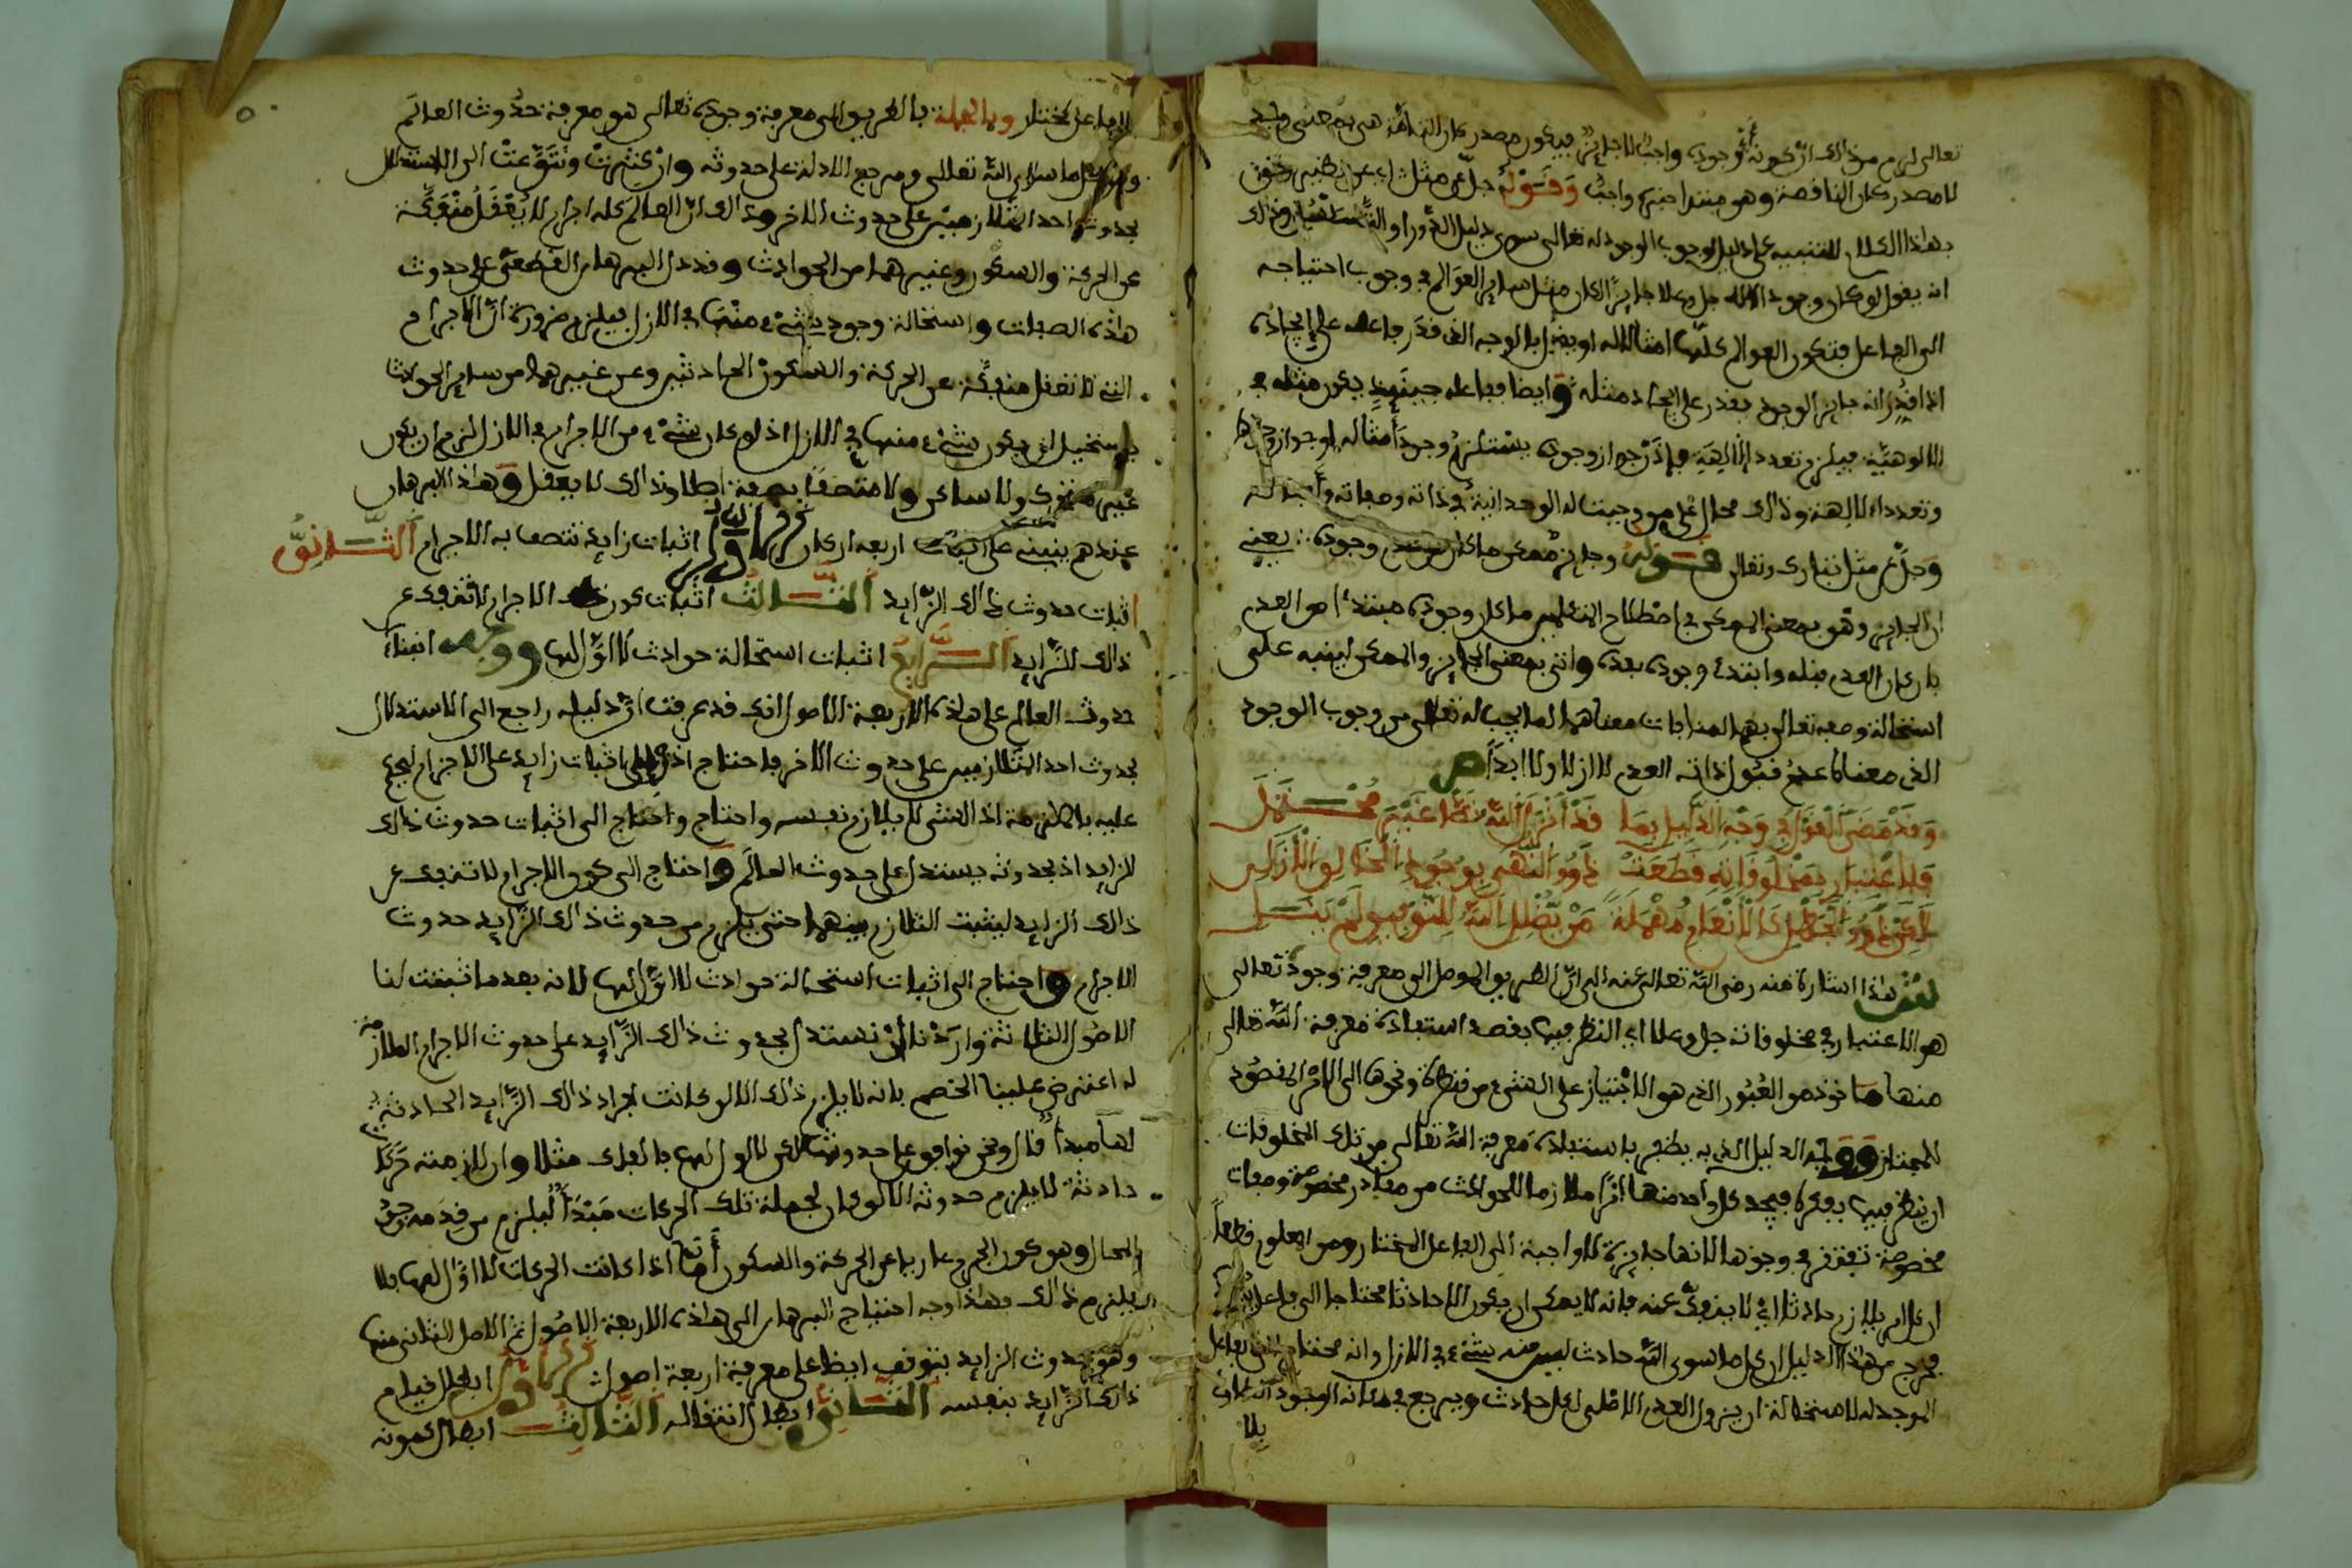 تعالى لزم من ذالك ان كونه أي وجوده واجبا لا جايز فيكون مصدر كان التامة هي بمعنى وجد
لا مصدر كان الناقصة وهو مبتدا خبره واجب وقوله جل عن مثل اي عن نظير وفي
بهذا الكلام للتنبيه على دليل وجوب الوجود له تعالى سوى دليل الدور او التسلسل وذالك
ان يقول لو كان وجود الاله جل وعلا جايزا لكان مثل ساير العوالم في وجوب احتياجه
الى الفاعل فتكون العوالم كلها امثالا له او يقول بالوجه الذي قدر فاعله على ايجاده
اذا قدر انه جايز الوجود يقدر على ايجاد مثله وايضا ففاعله حينيذ يكون مثله في
الالوهية فيلزم تعدد الالهة فاذن جواز وجوده يستلزم وجود أمثاله
وتعدد الالهة وذالك محال على من وجبت له الوحدانية في ذاته وصفاته وأفعاله
وجل عن مثل تبارك وتعالى قوله وجايز ممكن ما كان مبتدى وجوده يعني
ان الجايز وهو بمعنى الممكن في اصطلاح المتكلمين ما كان وجوده مبتدءا من العدم
بان كان العدم قبله وابتدء وجوده بعده واتى بمعنى الجايز والممكن لينبه على
استحالة وصفه تعالى بهما لمنافات معناهما لما يجب له تعالى من وجوب الوجود
الذي معناه عدم قبول ذاته العدم لا ازلا ولا ابدا ص
وقد مضى القول في وجه الدليل بما قد أنزل الله نصا غير محتمل
فلاعتبار بمخلوقاته قطعت ذوو النهى بوجود الخالق الأزلي
لكن ذوو الجهل كالأنعام مهملة من يضلل الله للتوفيق لم ينل
هذا اشارة منه رضي الله تعالى عنه الى ان الطريق الموصل الى معرفة وجوده تعالى
هو الاعتبار في مخلوقاته جل وعلا اي النظر فيها بقصد استفادة معرفة الله تعالى
منها ماخوذ من العبور الذي هو الاجتياز على الشيء من قنطرة ونحوها الى الامر المقصود
للمجتاز ووجه الدليل الذي به يظفر باستفادة معرفة الله تعالى من تلك المخلوقات
ان ينظر فيها بفكره فيجد كل واحد منها اثرا ملازما للحوادث من مقادر مخصوصة وصفات
مخصوصة تفتقر في وجودها لانها جايزة لا واجبة الى الفاعل المختار ومن المعلوم قطعا
ان كل ما يلازم حادثا اي لا ينفك عنه فانه لا يمكن ان يكون الا حادثا محتاجا الى فاعل
فخرج من هذا الدليل ان كل ما سوى الله حادث ليس منه شيء في الازل وانه محتاج الى فاعل
الموجد له لاستحالة ان يزول العدم الاصلي لكل حادث ويرجع في مكانه الوجود
بلا
بلا فاعل مختار وبالجملة فالطريق الى معرفة وجوده تعالى هو معرفة حدوث العالم
وهو كل ما سوى الله تعالى ومرجع الادلة على حدوثه وان كثرت وتنوعت الى الاستدلال
بحدوث احد المتلازمين على حدوث الاخر وذالك ان العالم كله اجرام لا يعقل منفكة
عن الحركة والسكون وغيرهما من الحوادث وقد دل البرهان القطعي على حدوث
هذه الصفات واستحالة وجود شيء منها في الازل فيلزم ضرورة ان الاجرام
التي لا تعقل منفكة عن الحركة والسكون الحادثين وعن غيرهما من ساير الحوادث
يستحيل ان يكون شيء منها في الازل اذ لو كان شيء من الاجرام في الازل لزم ان يكون
غير متحرك ولا ساكن ولا متصفا بصفة اصلا وذالك لا يعقل وهذا البرهان
عندهم ينبني على اربعة اركان الأول اثبات زايد تتصف به الاجرام الثاني
اثبات حدوث ذالك الزايد الثالث اثبات كون الاجرام لا تنفك عن
ذالك الزايد الرابع اثبات استحالة حوادث لا اول لها ووجه ابتناء
حدوث العالم على هذه الاربعة الاصول انك قد عرفت ان دليله راجع الى الاستدلال
بحدوث احد المتلازمين على حدوث الاخر فاحتاج الى اثبات زايد على الاجرام ليحكم
عليه بالملازمة اذ الشيء لا يلازم نفسه واحتاج الى اثبات حدوث ذالك
الزايد اذ بحدوثه يستدل على حدوث العالم واحتاج الى كون الاجرام لا تنفك عن
ذالك الزايد ليثبت التلازم بينهما حتى يلزم من حدوث ذالك الزايد حدوث
الاجرام واحتاج الى اثبات استحالة حوادث لا اول لها لانه بعد ما ثبتت لنا
الاصول الثلاثة واردنا ان نستدل بحدوث ذالك الزايد على حدوث الاجرام الملازمة
له اعترض علينا الخصم بانه لا يلزم ذالك الا لو كانت افراد ذالك الزايد الحادثة
لها مبدأ قال ونحن نوافق على حدوث لكن لا اول لها فالفلك مثلا وان لازمته حركات
حادثة لا يلزم حدوثه الا لو كان لجملة تلك الحركات مبدأ ليلزم من قدمه وجود
المحال وهو كون الجرم عاريا عن الحركة والسكون أما اذا كانت الحركات لا اول لها فلا
يلزم ذالك فهذا وجه احتياج البرهان الى هذه الاربعة الاصول ثم الاصل الثاني منها
وهو حدوث الزايد يتوقف ايضا على معرفة اربعة اصول الأول ابطال قيام
ذالك الزايد بنفسه الثاني ابطال انتقاله الثالث ابطال كمونه